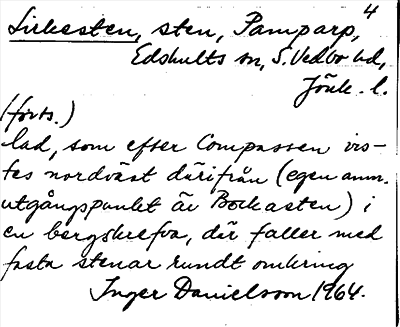 4
Lirkesten, sten, Pamparp,
Edshults sn, S. Vedbo hd,
Jönk. l.
(forts.)
lad, som efter Compassen vis-
tes nordväst därifrån (egen anm.
utgångspunkt är Bockasten) i
en bergskrefva, där faller med
fasta stenar rundt omkring
Inger Danielsson 1964.